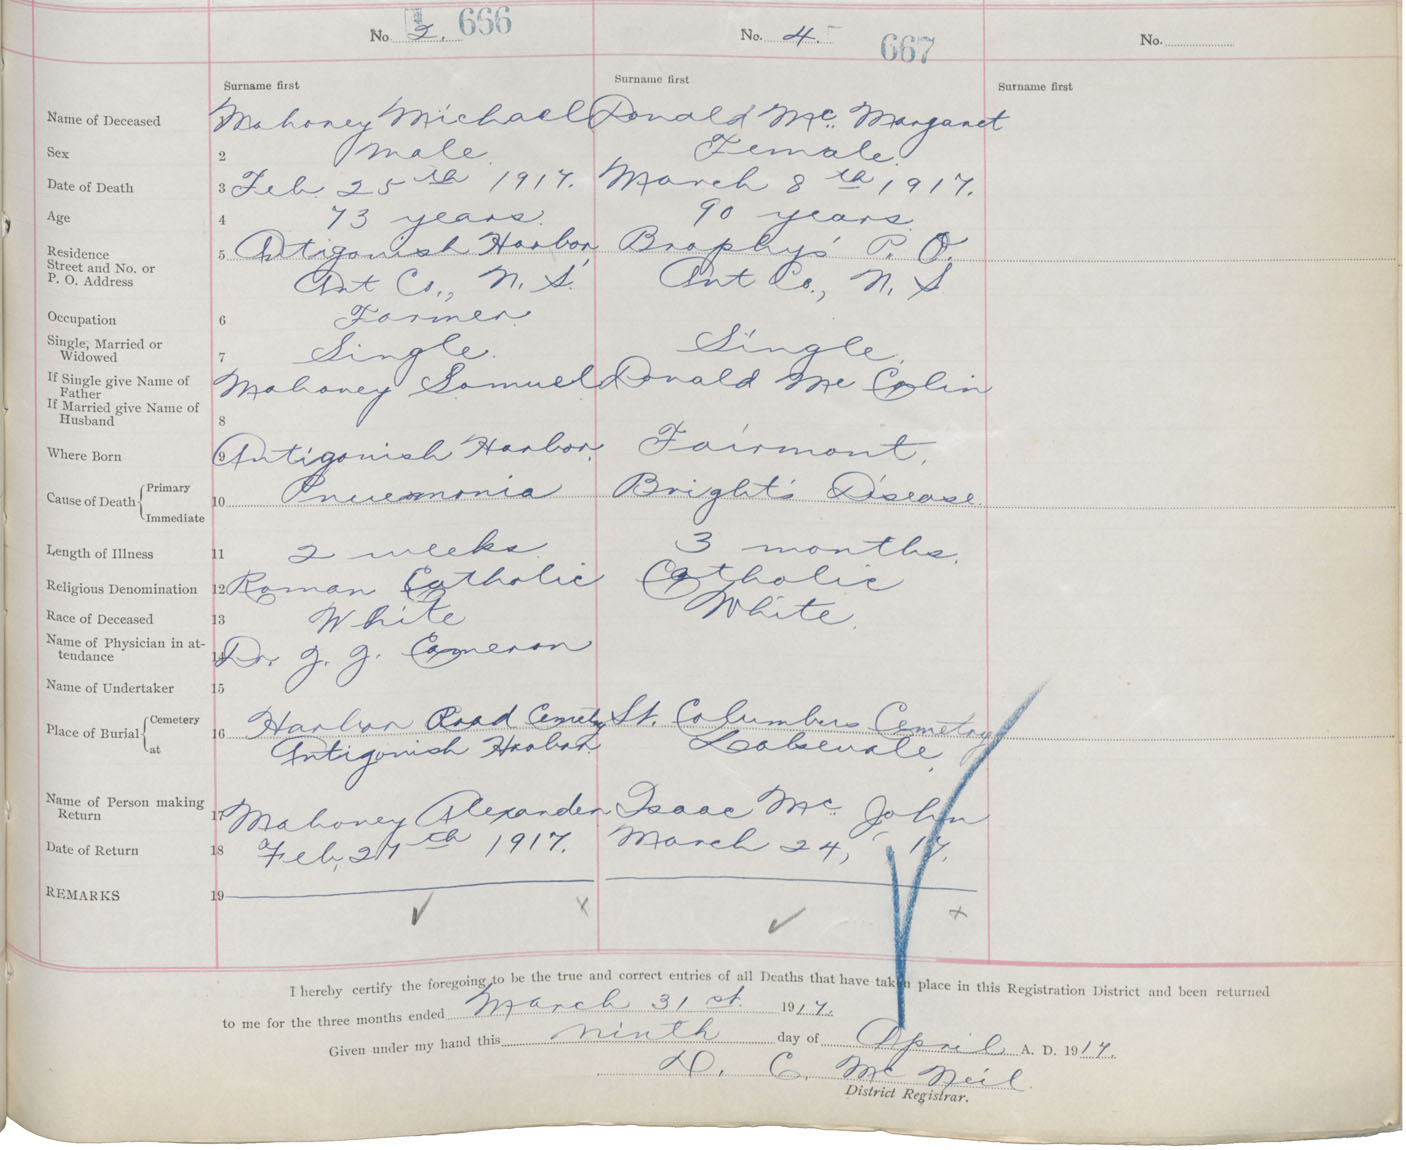 No. 2. 666 No. 4. 667 No.
Surname first Surname first Surname first
Name of Deceased 1 Mahoney Michael Donald Mc. Margaret
Sex 2 Male. Female.
Date of Death 3 Feb. 25th 1917. March 8th, 1917.
Age 4 73 years. 90 years.
Residence 5 Antigonish Harbor, Brophy's P. O.
Street and No. or
P. O. Address Ant Co., N. S. Ant Co., N. S
Occupation 6 Farmer.
Single, Married or
Widowed 7 Single. Single.
If Single give Name of
Father Mahoney Samuel Donald Mc Colin
If Married give Name of
Husband 8
Where Born 9 Antigonish Harbor. Fairmont.
Cause of Death { Primary
Immediate 10 Pneumonia Bright's Disease
Length of Illness 11 2 weeks. 3 months.
Religious Denomination 12 Roman Catholic Catholic
Race of Deceased 13 White White.
Name of Physician in at-
tendance 14 Dr. J. J. Cameron
Name of Undertaker 15
Place of Burial { Cemetery
at 16 Harbor Road Cemetry St. Columbus Cemetry
Antigonish Harbor. Lakevale.
Name of Person making
Return 17 Mahoney Alexander Isaac Mc. John
Date of Return 18 Feb, 27th 1917. March 24, '17.
REMARKS 19
I hereby certify the foregoing to be the true and correct entries of all Deaths that have taken place in this Registration District and been returned
to me for the three months ended March 31 st. 1917.
Given under my hand this ninth day of April A. D. 1917.
D. C. Mc Neil
District Registrar.